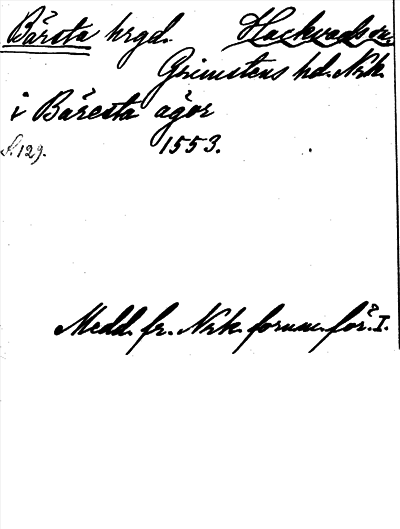 Bårsta hrgd. Hackvads sn.
Grimstens hd. Nrk.
i Båresta ägor
S. 129. 1553.
Medd. fr. Nrk. fornm. för. I.